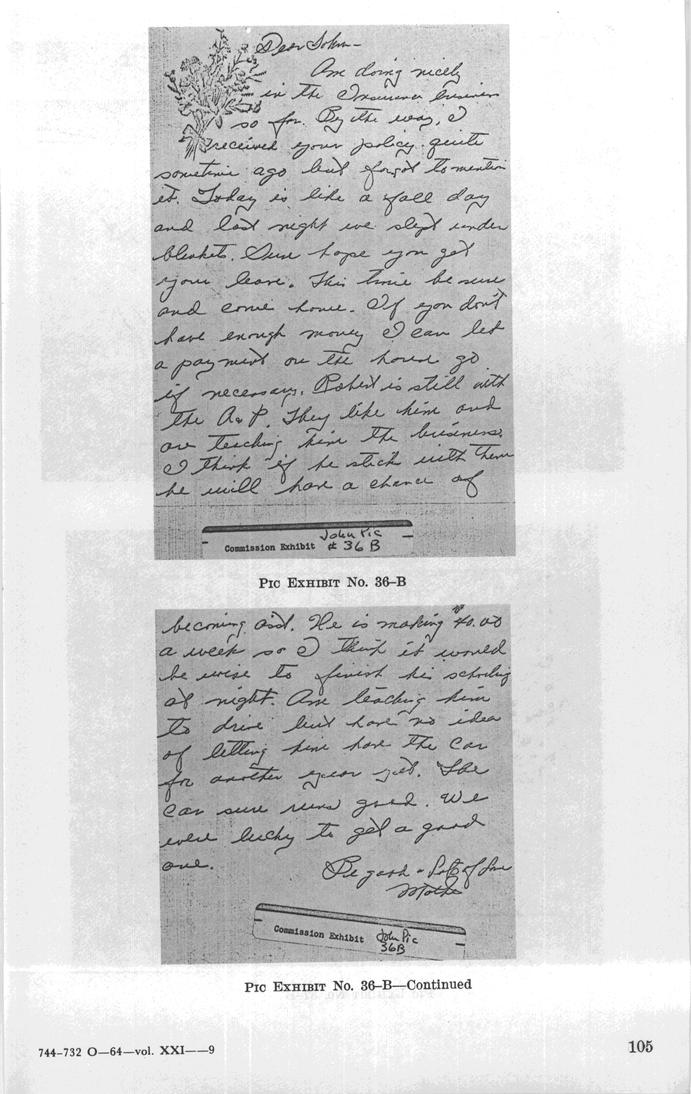 Dear John—
Am doing nicely
in the Insurance business
so far. By the way, I
received your policy quite
sometime ago but forgot to mention
it. Today is like a fall day
and last night we slept under
blankets. Sure hope you get
your leave. This time be sure
and come home. If you don't
have enough money I can let
a payment on the house go
if necessary. Robert is still with
the A&P. They like him and
are teaching him the business.
I think if he stick with them
he will have a chance of
Commission Exhibit John Pic # 36 B
PIC EXHIBIT NO. 36-B
becoming asst. He is making $40.00
a week so I think it would
be wise to finish his schooling
at night. Am teaching him
to drive but have no idea
of letting him have the car
for another year yet. The
car sure runs good. We
were lucky to get a good
one.
Lots of love
Mother
Commission Exhibit John Pic 36B
PIC EXHIBIT NO. 36-B—Continued
744-732 O—64—vol. XXI——9
105